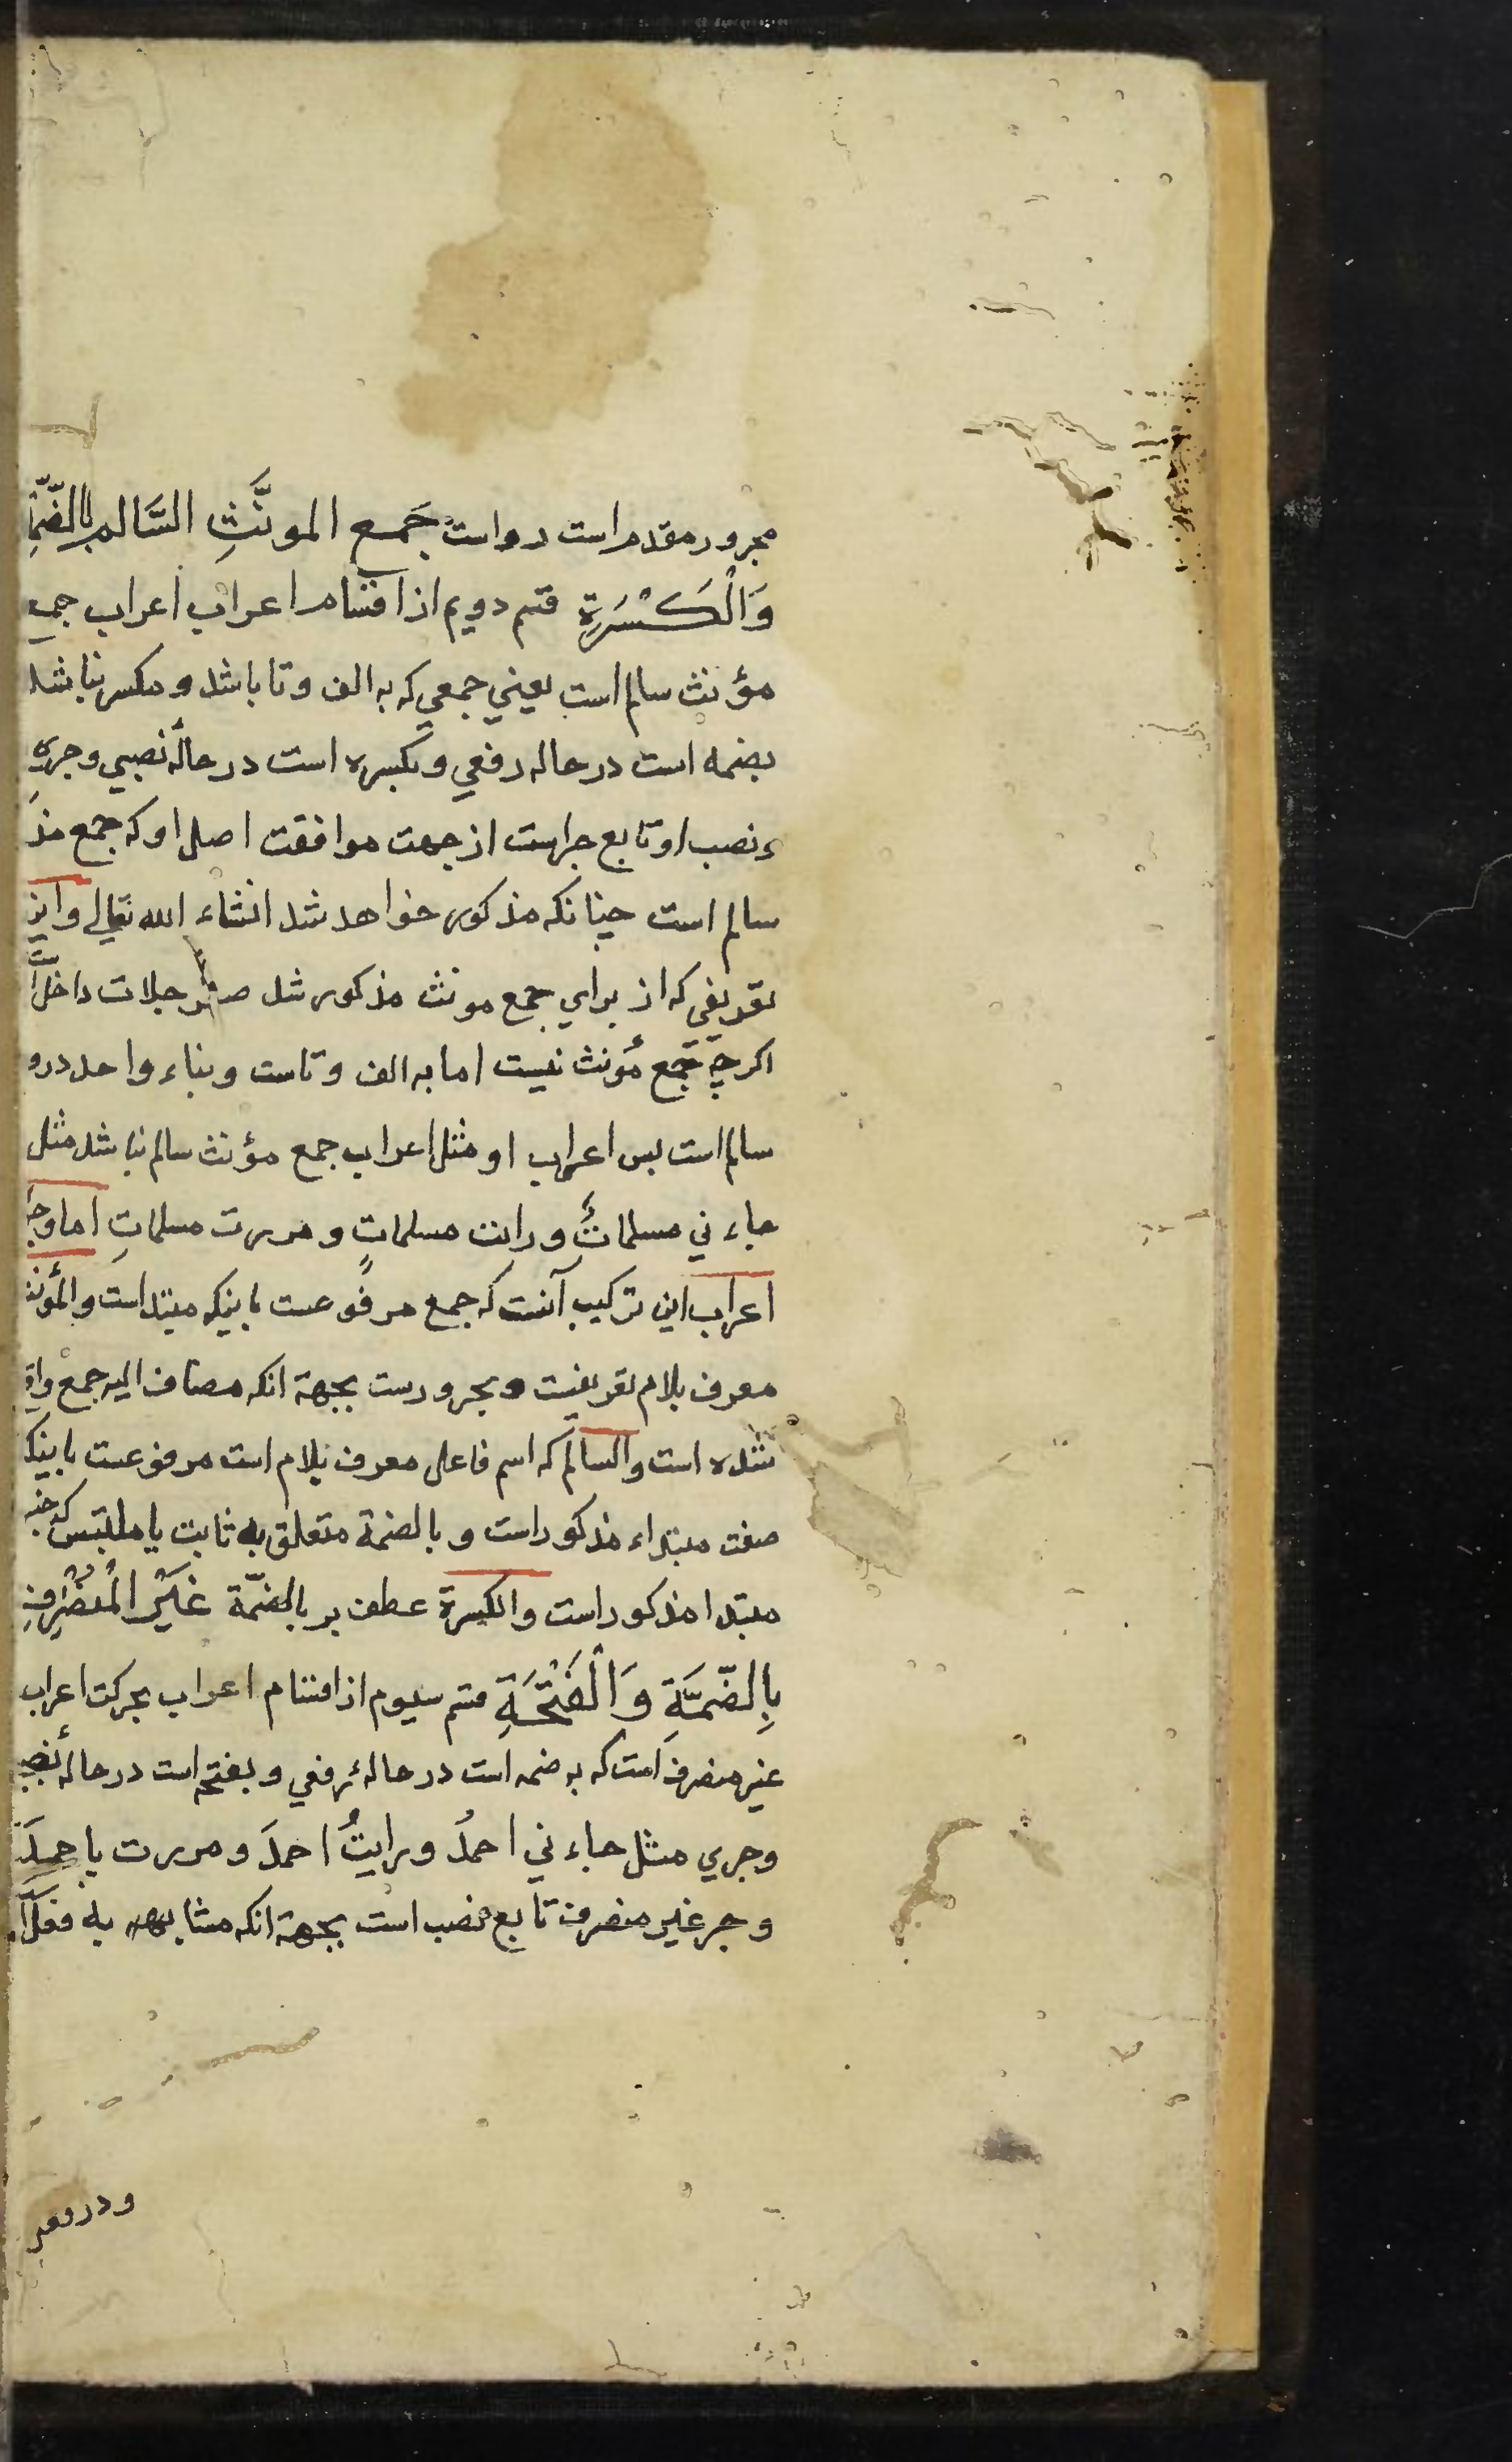 مجرور مقدم است در واست جَمع المونَّثِ السَّالم بالضّمّة
وَالْكَسْرَةِ قسم دويم از اقسام اعراب اعراب جمع
مؤنث سالم است يعني جمعي كه به الف و تا باشد و مكسر نباشد
بضمه است در حاله رفعي و بكسره است در حالهٔ نصبي و جري
و نصب او تابع جراست از جهت موافقت اصل او كه جمع مذ
سالم است چنانكه مذكور خواهد شد انشاء الله تعالي و اين
تعريفي كه از براي جمع مونث مذكور شد سفرجلات داخل
اكرچه جمع مؤنث نيست اما به الف و تاست و بناء واحد درو
سالم است بس اعراب او مثل اعراب جمع مؤنث سالم نباشد مثل
جاءني مسلماتٌ و رايت مسلماتٍ و مررت مسلماتٍ اما وجه
اعراب اين تركيب آنست كه جمع مرفوعست باينكه مبتداست و المؤنث
معرف بلام تعريفست و مجرورست بجهة انكه مضاف اليه جمع واقع
شده است و السالم كه اسم فاعل معرف بلام است مرفوعست باينكه
صفت مبتداء مذكور است و بالضمة متعلق به ثابت يا ملتبس كه خبر
مبتدا مذكور است و الكسرة عطف بر بالضمّة غَيْرُ الْمُنْصَرِفِ
بِالضَّمَّةِ وَالْفَتْحَةِ قسم سيوم از اقسام اعراب بحركت اعراب
غير منصرف است كه به ضمه است در حالهٔ رفعي و بفتح است در حالهٔ نصبي
و جري مثل جاءني احمدُ و رايتُ احمدَ و مررت باحمدَ
و جر غير منصرف تابع نصب است بجهة انكه مشابهه به فعل